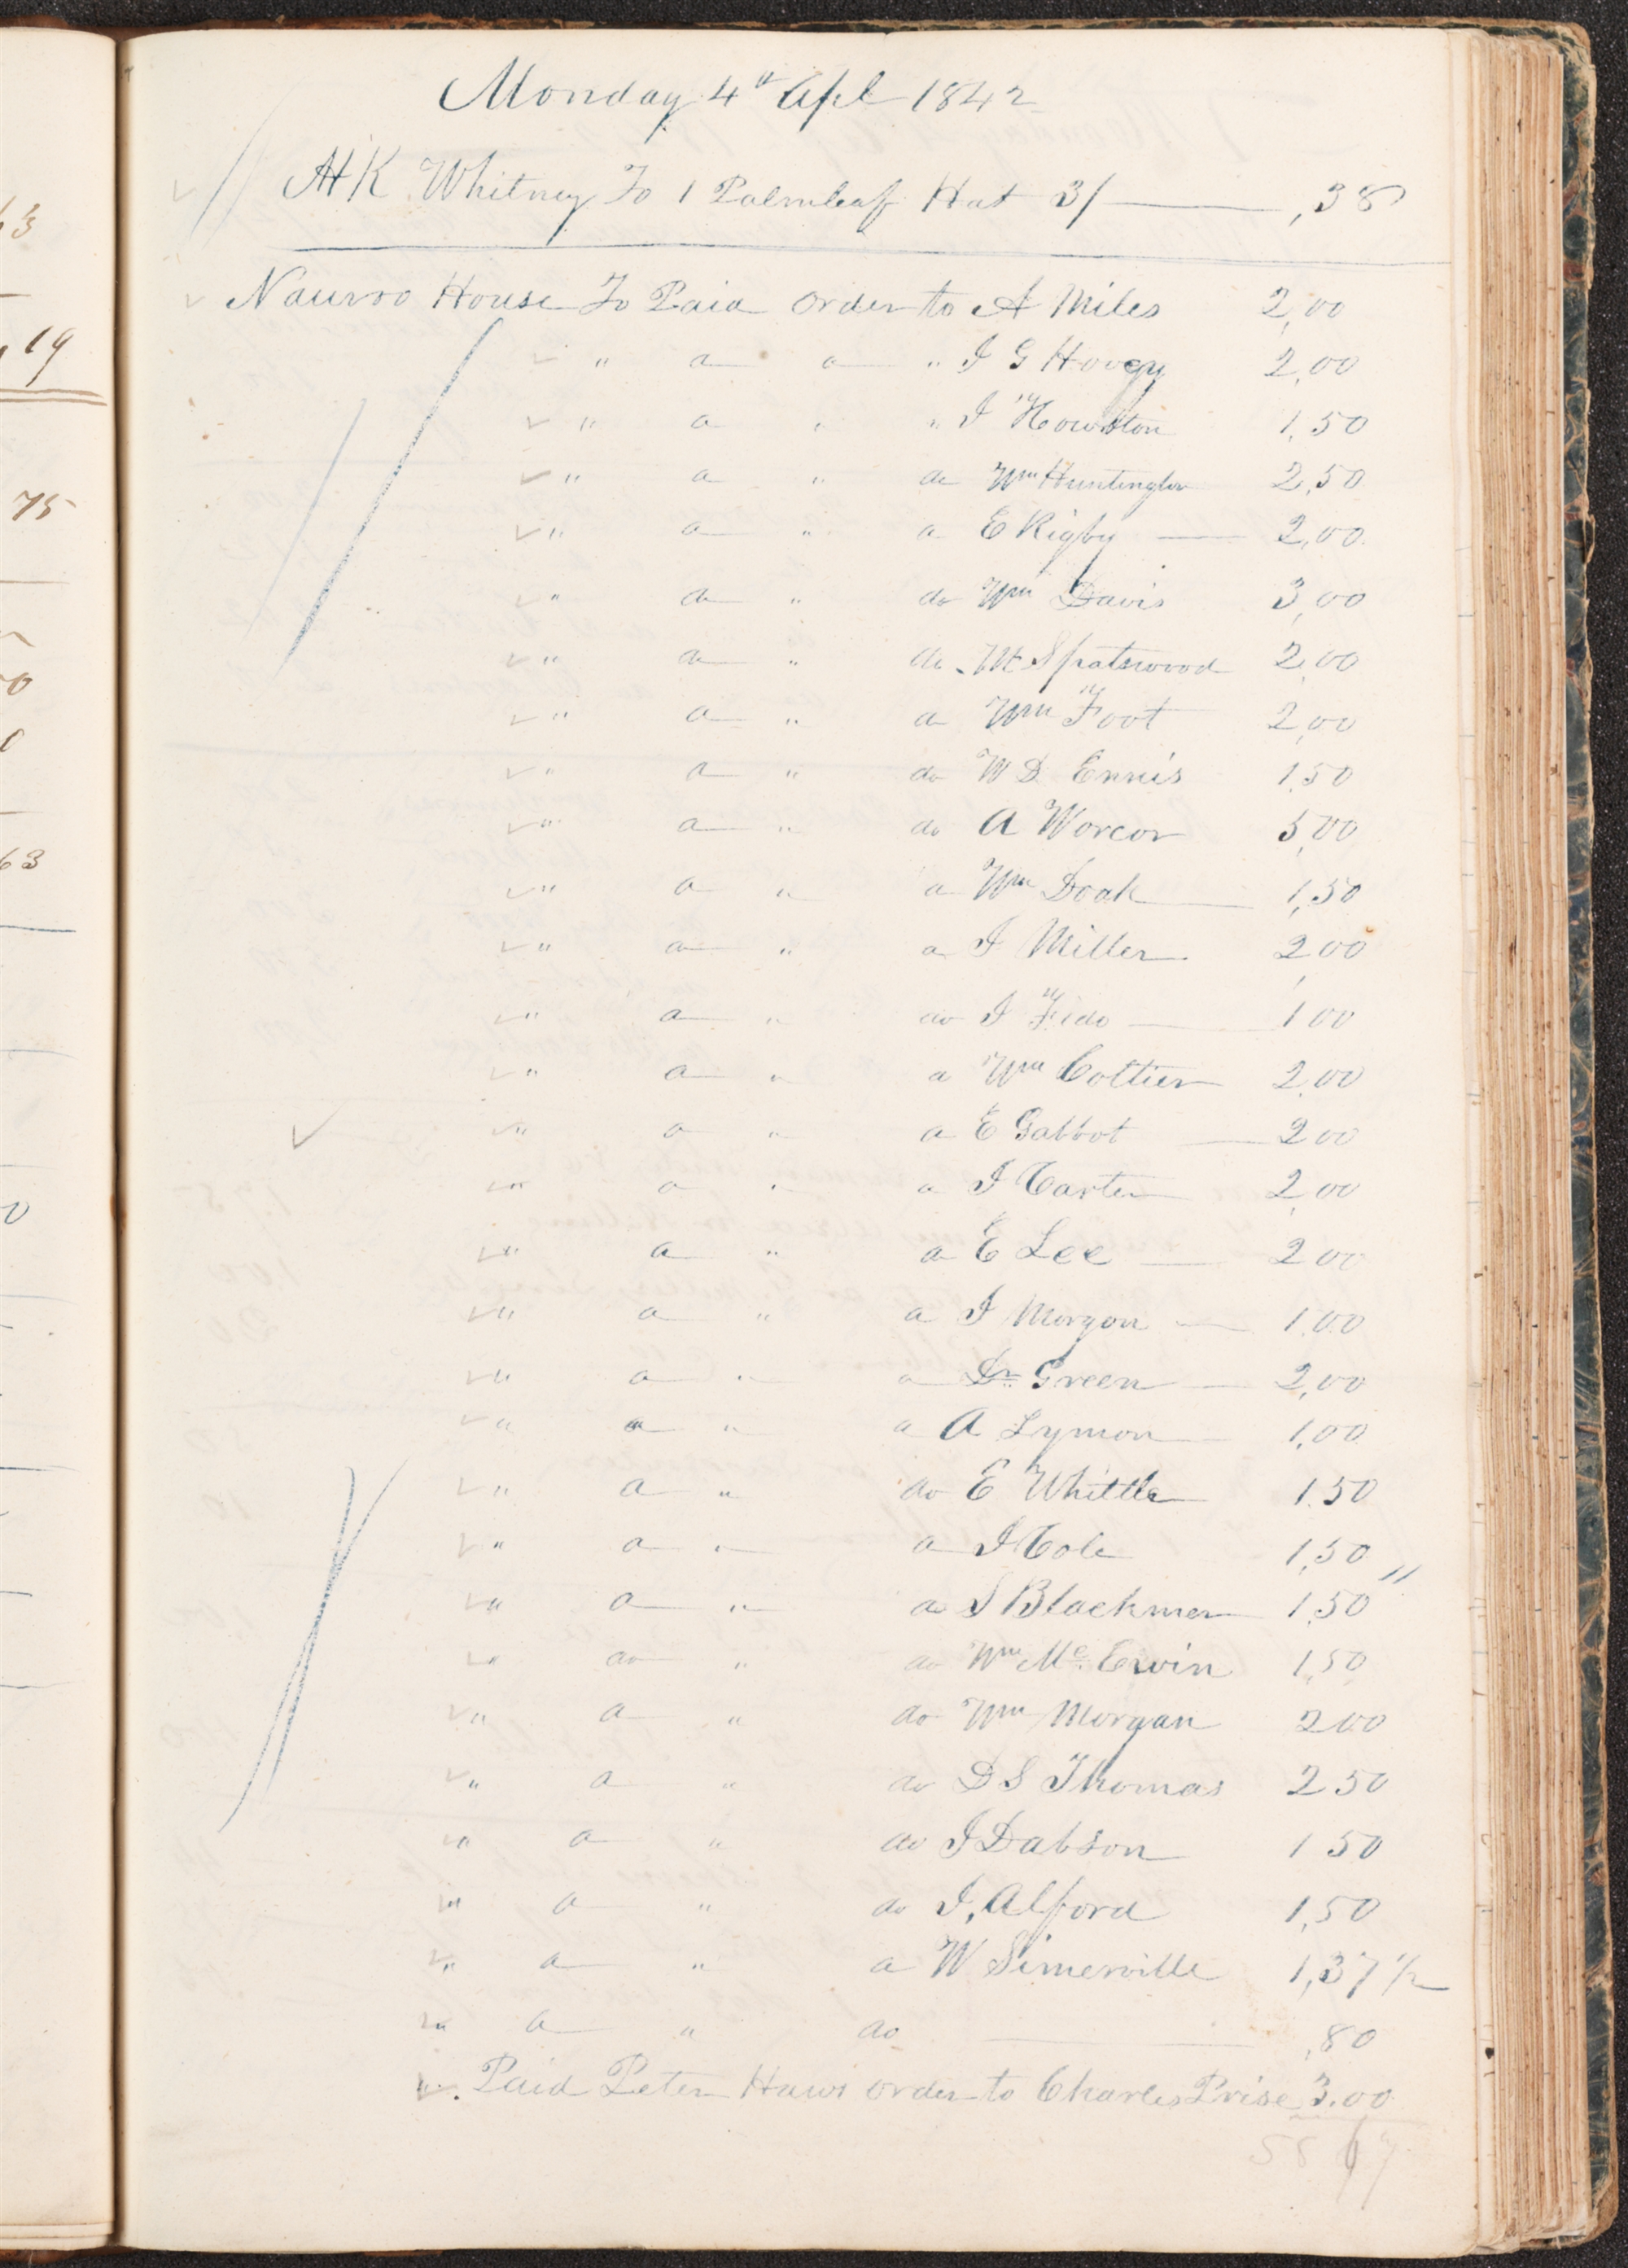 Monday 4th Apl 1842
NK Whitney To 1 Palmleaf Hat 3/ ,38
Nauvoo House To Paid order to A Miles 2,00
" do do " J G Hovey 2,00
" do " " J Howston 1,50
" do " do Wm Huntington 2,50
" do " do E Rigby 2,00
" do " do Wm Davis 3,00
" do " do M Spatswood 2,00
" do " do Wm Foot 2,00
" do " do W D Ennis 1,50
" do " do A Worcor 5,00
" do " do Wm Doak 1,50
" do " do J Miller 2,00
" do " do J Fido 1,00
" do " do Wm Cottier 2,00
" do " do E Gabbot 2 00
" do " do J Carter 2,00
" do " do E Lee 2 00
" do " do J Morgon 1.00
" do " do Dr Green 2,00
" do " do A Lymon 1,00
" do " do E Whittle 1.50
" do " do J Cole 1,50
" do " do S Blackmer 1,50
" do " do Wm Mc Ewin 1,50
" do " do Wm Morgan 2 00
" do " do D S Thomas 2 50
" do " do J Dabson 1 50
" do " do J, Alford 1,50
" do " do W Simerville 1,37 1/2
" do " do ,80
" Paid Peter Haws order to Charles Prise 3.00
58 67
63
,19
75
0
0
63
0